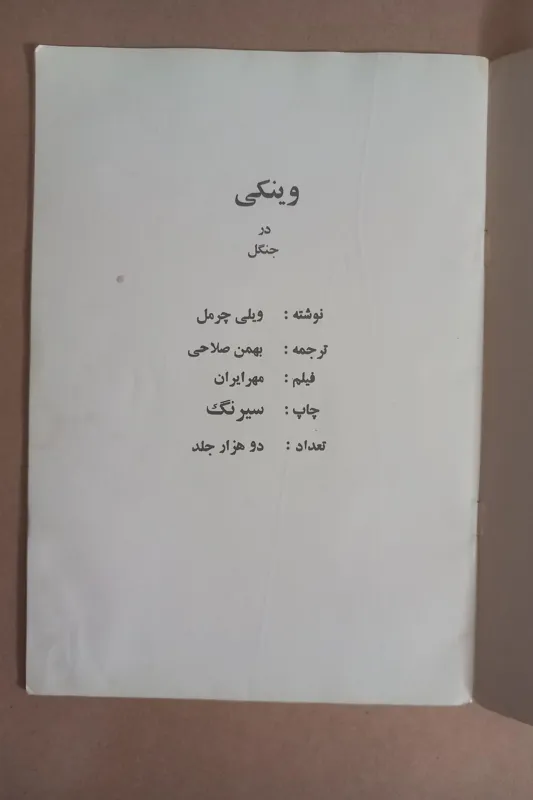 وینکی
در
جنگل
نوشته : ویلی چرمل
ترجمه : بهمن صلاحی
فیلم : مهرایران
چاپ : سیرنگ
تعداد : دو هزار جلد